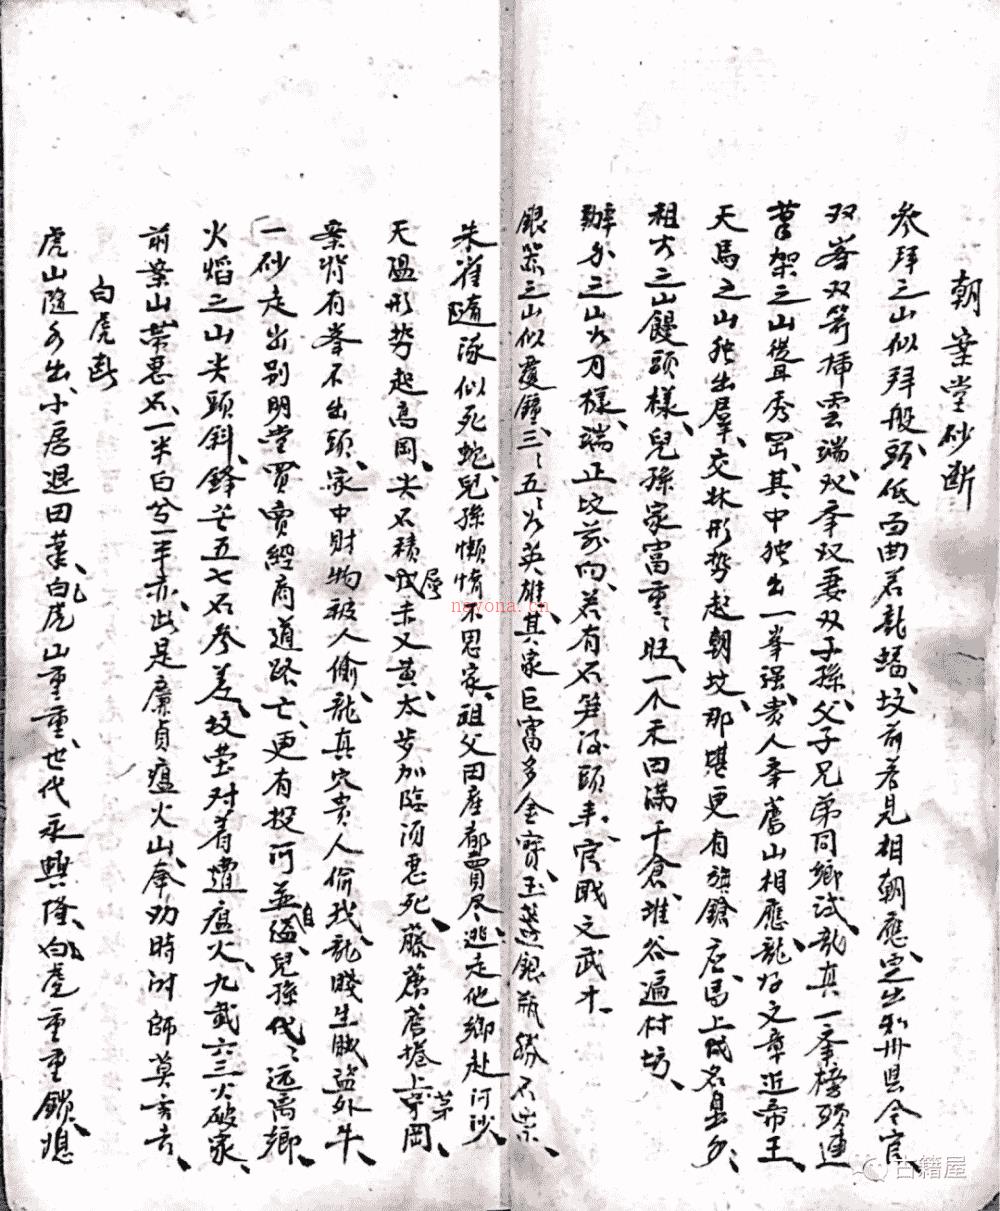 朝案堂砂断
参拜之山似拜般、头低面曲若龍蟠、坟前若見相朝應、定出知州县令官、
双峯双笋插雲端、双峯双妻双子孫、父子兄弟同鄉試、龙真一案榜頭連
筆架之山從耳秀、其中独出一峯强、贵人峯荐山相應、龍好文章近帝王、
天馬之山独出群、交牀形势起朝坟、那堪更有旗鎗应、馬上成名皇
祖大之山饅頭樣、兒孫家富重〻旺、一个禾囤满千倉、堆谷遍村坊、
辦小三山如刀樣、端正坟前向、若有石笋没頭丰、官戝文武才、
銀茶之山似覆鐘、三〻五〻出英雄、其家巨富多金寳、玉盞銀瓶勝石崇、
朱雀隨涿似死蛇、兒孫懒惰不思家、祖父田産都賣尽、逃走他鄉赴河沙、
天瘟形势起高岡、尖石積成赤又黄、太岁加臨須惡死、藤蘿卷上茅岡
案背有峯不出頭、家中財物被人偷、龍真穴贵人偷我、龍賤生賊盗外牛、
一砂走出别明堂、買賣經商道路亡、更有投河並自縊、兒孫代〻远离鄉、
火焰之山尖頭斜、鋒芒五七石参差、坟茔对着遭瘟火、九武六三火破家、
前案山带惡石、一半白兮一半赤、此是廉貞瘟火山、奉劝時師莫言吉、
白虎断
虎山隨水出、小房退田業、白虎山重重、世代永興隆、白虎重重鎖